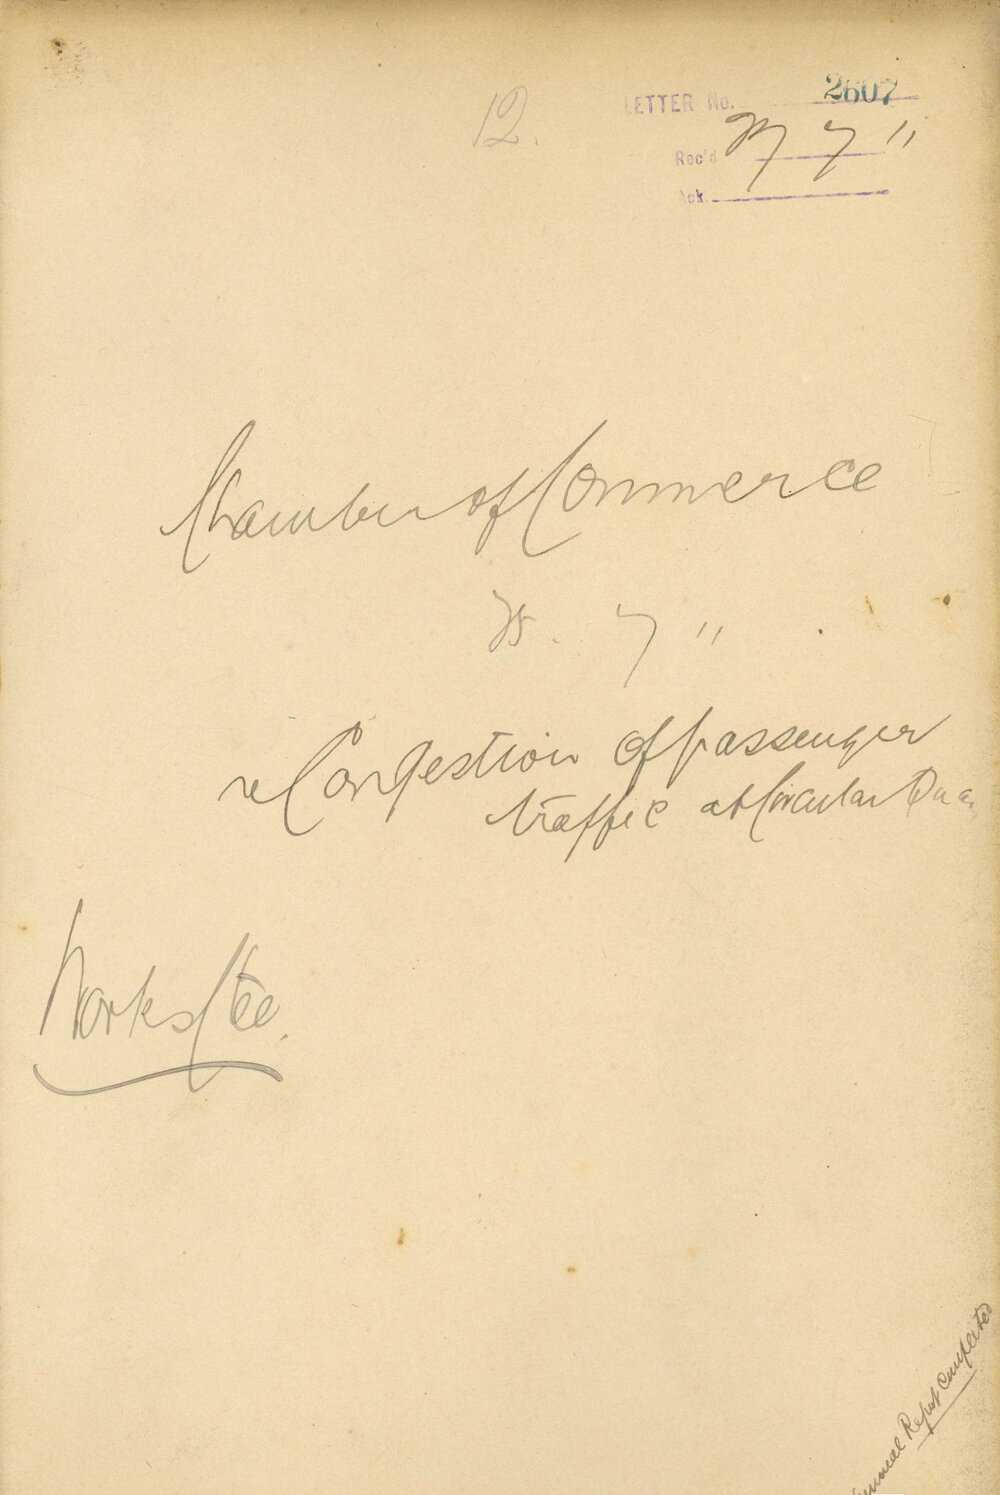 12.
LETTER No. 2607
Rec'd 7 11
Ack.
Chamber of Commerce
7 11
re Congestion of passenger
traffic at Circular Qua
Works Ctee.
Annual Report Completed